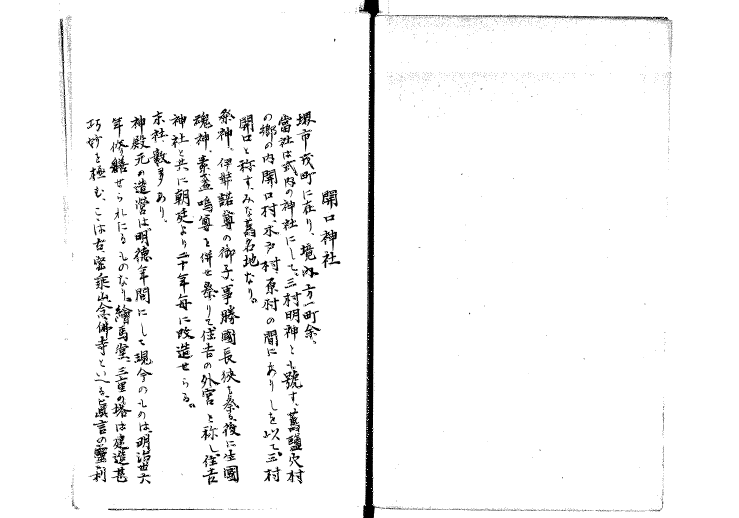 開口神社
堺市茂町に在り、境内方一町余、
當社は式内の神社にして、三村明神とも號す、舊鹽穴村
の郷の内開口村、木戸村、原村の間にありしを以て三村
開口と称す、みな舊名地なり。
祭神、伊弉諾尊の御子、事勝國長狹を祭る、後に生國
魂神、素盞嗚尊を併せ祭りて住吉の外宮と称し、住吉
神社と共に朝廷より二十年毎に改造せらる。
末社、數多あり、
神殿元の造営は、明德年間にして現今のものは、明治卅六
年修繕せられたるものなり。繪馬堂、三重の塔は建造甚
巧妙を極む、こは古密乘山念佛寺といへる、眞言の靈刹